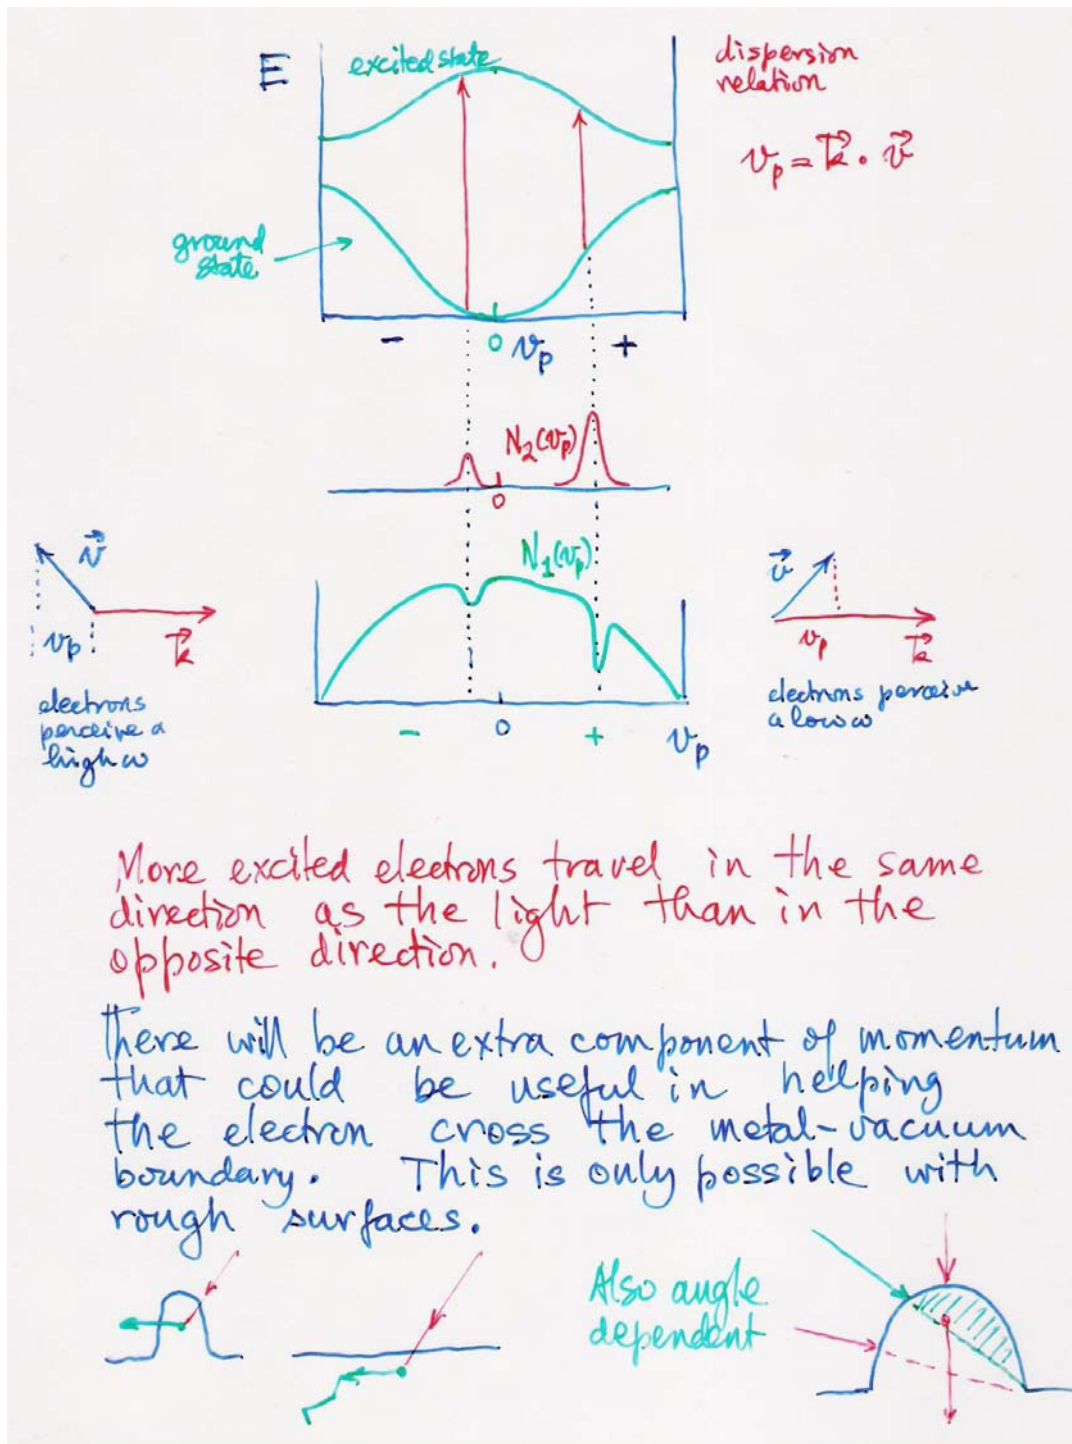 E
excited state
dispersion
relation
v_p = k⃗ · v⃗
ground
state
-
0
v_p
+
N_2(v_p)
0
N_1(v_p)
v⃗
v_p
k⃗
electrons
perceive a
high ω
-
0
+
v_p
v⃗
v_p
k⃗
electrons perceive
a low ω
More excited electrons travel in the same
direction as the light than in the
opposite direction.
There will be an extra component of momentum
that could be useful in helping
the electron cross the metal-vacuum
boundary. This is only possible with
rough surfaces.
Also angle
dependent